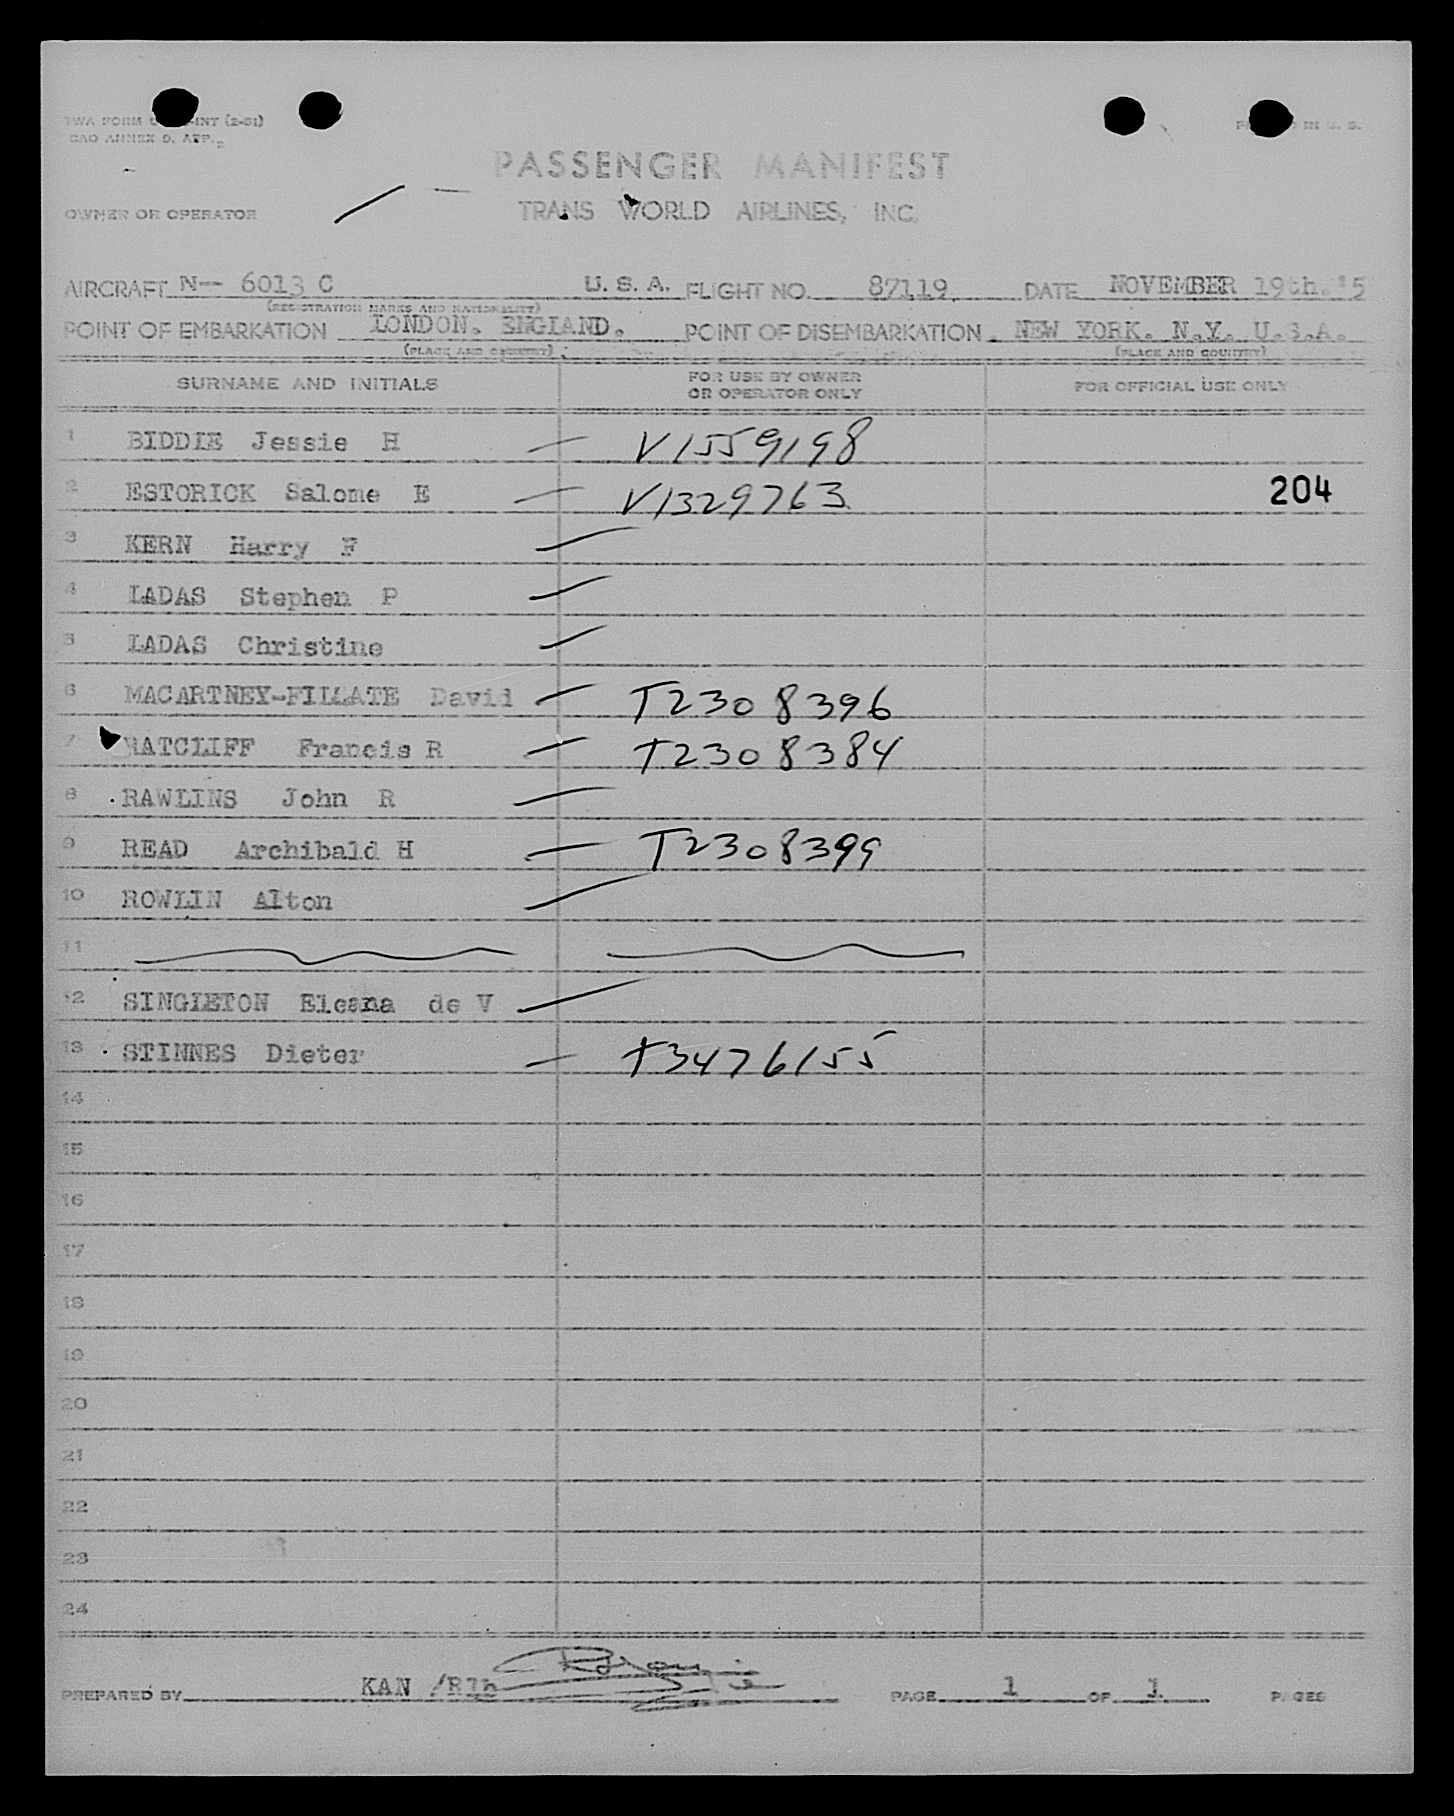 TWA FORM INT (2-51)
CAO ANNEX 9, APP. 2
IN U. S.
PASSENGER MANIFEST
OWNER OR OPERATOR TRANS WORLD AIRLINES, INC.
AIRCRAFT N-- 6013 C U. S. A. FLIGHT NO. 87119 DATE NOVEMBER 19th.'5
(REGISTRATION MARKS AND NATIONALITY)
POINT OF EMBARKATION LONDON. ENGLAND. POINT OF DISEMBARKATION NEW YORK. N.Y. U.S.A.
(PLACE AND COUNTRY) (PLACE AND COUNTRY)
SURNAME AND INITIALS FOR USE BY OWNER OR OPERATOR ONLY FOR OFFICIAL USE ONLY
1 BIDDLE Jessie H V1559198
2 ESTORICK Salome E V1329763 204
3 KERN Harry F
4 LADAS Stephen P
5 LADAS Christine
6 MACARTNEY-FILLATE David T2308396
7 RATCLIFF Francis R T2308384
8 RAWLINS John R
9 READ Archibald H T2308399
10 ROWLIN Alton
11
12 SINGLETON Eleana de V
13 STINNES Dieter T3476155
14
15
16
17
18
19
20
21
22
23
24
PREPARED BY KAN PAGE 1 OF 1 PAGES